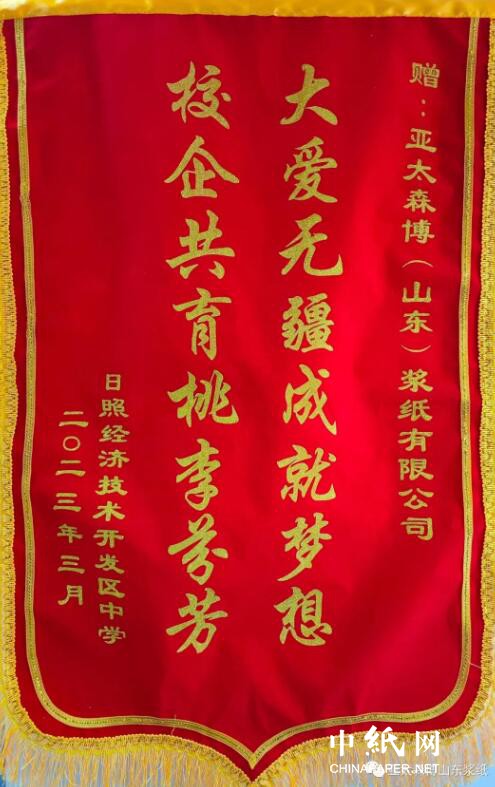 赠：亚太森博（山东）浆纸有限公司
大爱无疆成就梦想
校企共育桃李芬芳
日照经济技术开发区中学
二〇二三年三月
中紙网
CHINAPAPER.NET
山东浆纸